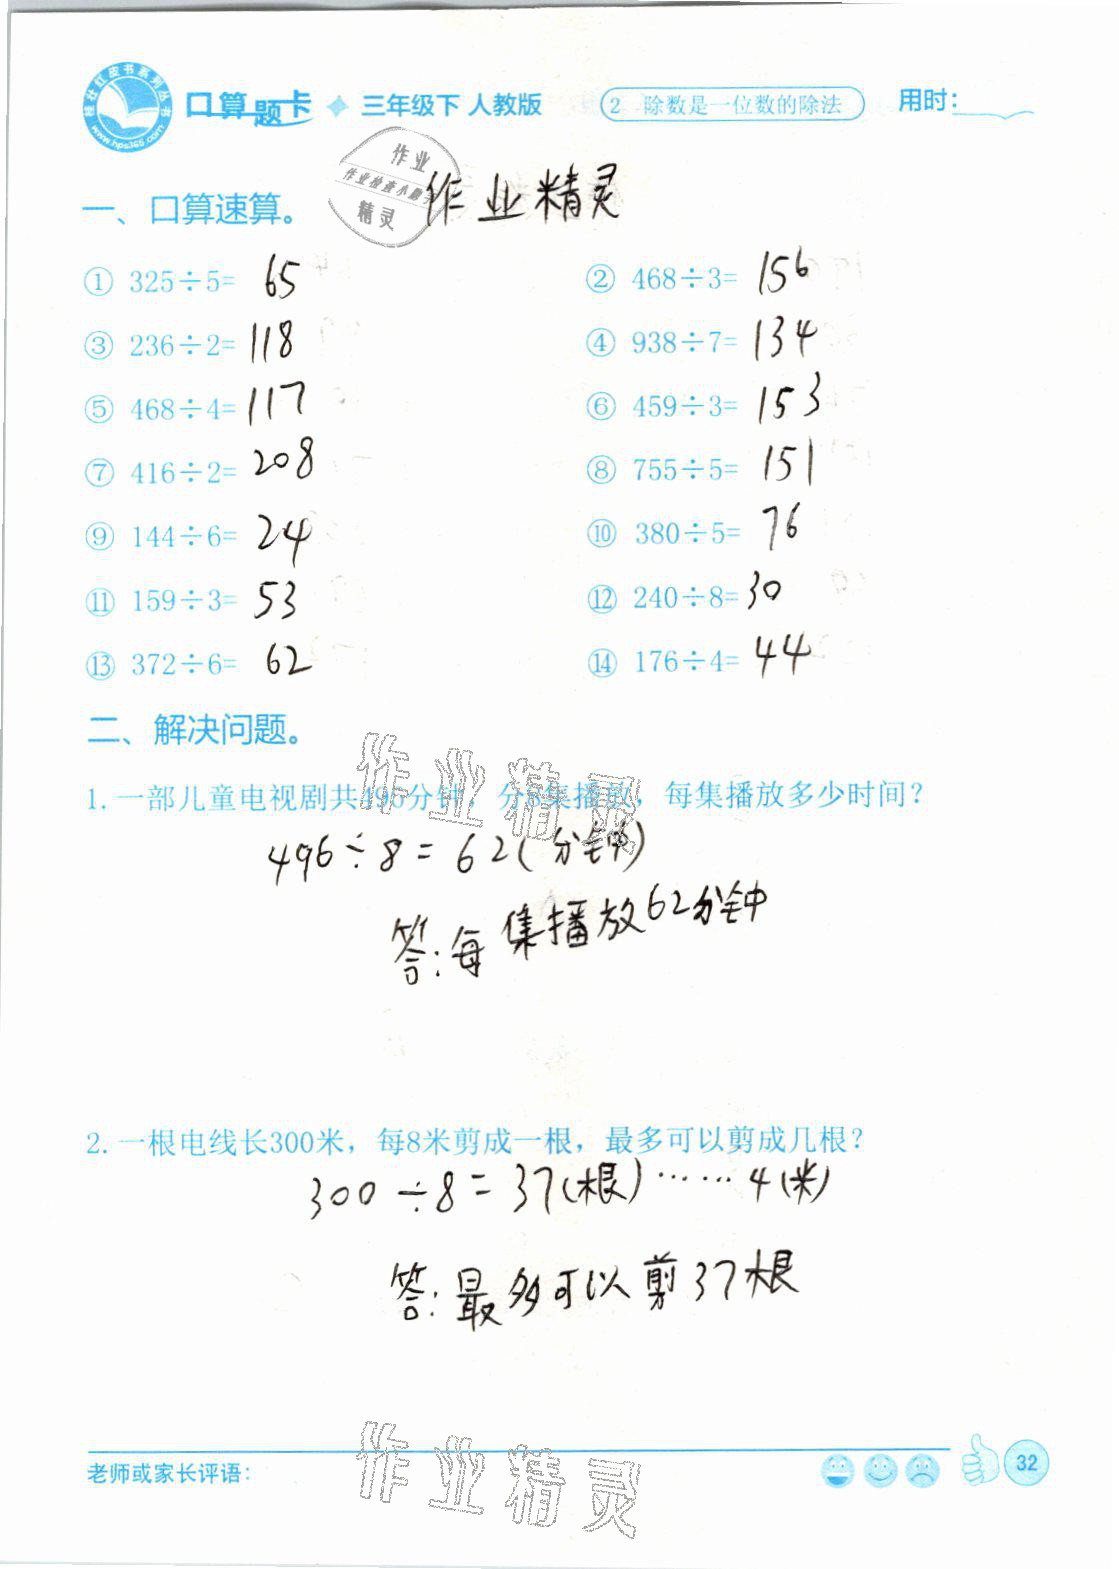 桂壮红皮书系列丛书
www.hps365.com
口算题卡 三年级下 人教版 2 除数是一位数的除法 用时:
作业
作业检查小助手
精灵
作业精灵
一、口算速算。
① 325÷5= 65 ② 468÷3= 156
③ 236÷2= 118 ④ 938÷7= 134
⑤ 468÷4= 117 ⑥ 459÷3= 153
⑦ 416÷2= 208 ⑧ 755÷5= 151
⑨ 144÷6= 24 ⑩ 380÷5= 76
⑪ 159÷3= 53 ⑫ 240÷8= 30
⑬ 372÷6= 62 ⑭ 176÷4= 44
二、解决问题。
作业精灵
1. 一部儿童电视剧共496分钟，分8集播放，每集播放多少时间？
496÷8=62(分钟)
答:每集播放62分钟
2. 一根电线长300米，每8米剪成一根，最多可以剪成几根？
300÷8=37(根)……4(米)
答:最多可以剪37根
作业精灵
老师或家长评语: 32